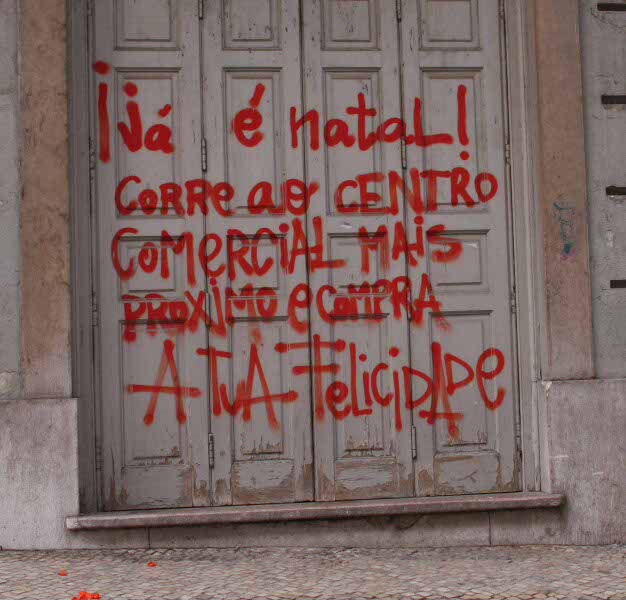 ¡Já é natal!
CORRE AO CENTRO
COMERCIAL MAIS
PROXIMO E COMPRA
A TUA FELICIDADE